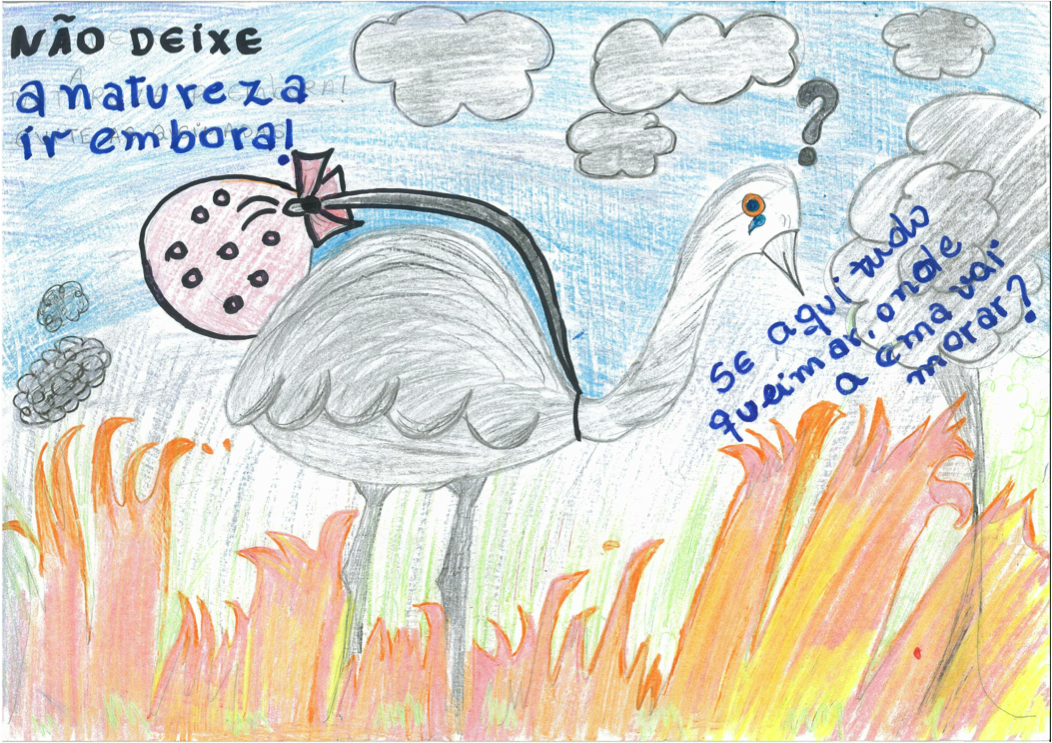 NÃO DEIXE
a natureza
ir embora!
?
SE aqui tudo
queimar, onde
a ema vai
morar?